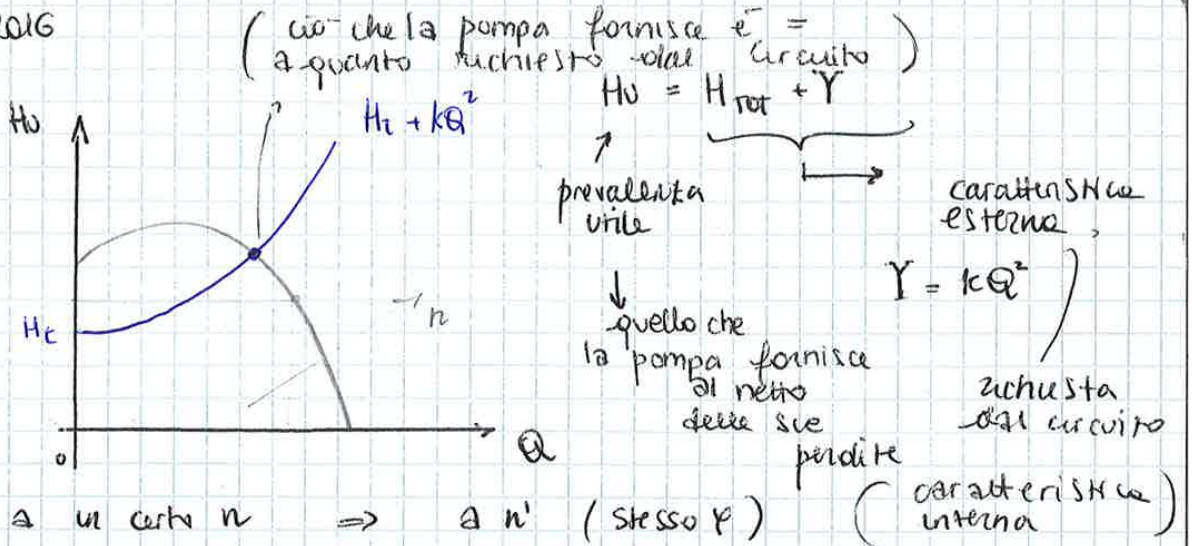 2016
( ciò che la pompa fornisce è =
a quanto richiesto dal circuito )
Hu = H_TOT + Y
Hu
H_t + kQ²
prevalenza
utile
caratteristica
esterna
Y = kQ²
n
H_t
quello che
la pompa fornisce
al netto
delle sue
perdite
richiesta
dal circuito
Q
0
a un certo n ⇒ a n' (stesso φ)
( caratteristica
interna )